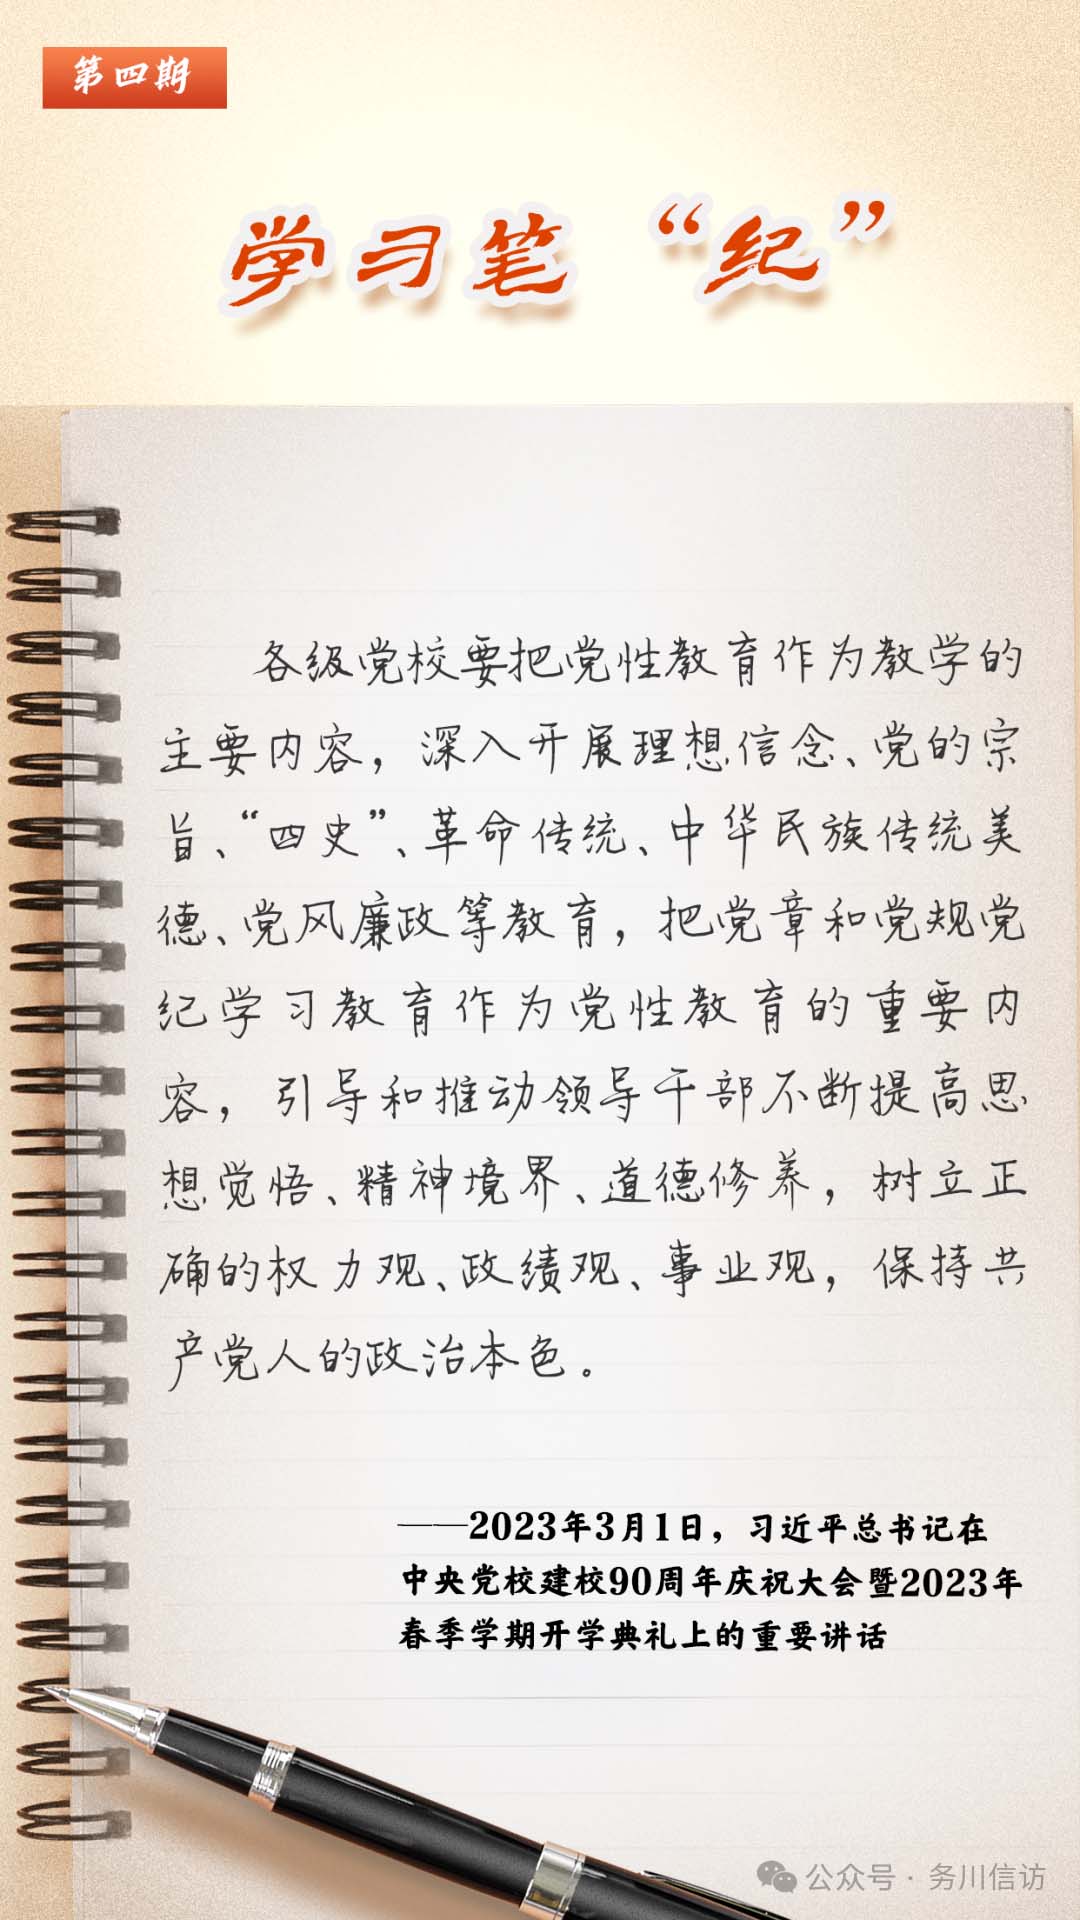 第四期
学习笔“纪”
各级党校要把党性教育作为教学的
主要内容，深入开展理想信念、党的宗
旨、“四史”、革命传统、中华民族传统美
德、党风廉政等教育，把党章和党规党
纪学习教育作为党性教育的重要内
容，引导和推动领导干部不断提高思
想觉悟、精神境界、道德修养，树立正
确的权力观、政绩观、事业观，保持共
产党人的政治本色。
——2023年3月1日，习近平总书记在
中央党校建校90周年庆祝大会暨2023年
春季学期开学典礼上的重要讲话
公众号·务川信访